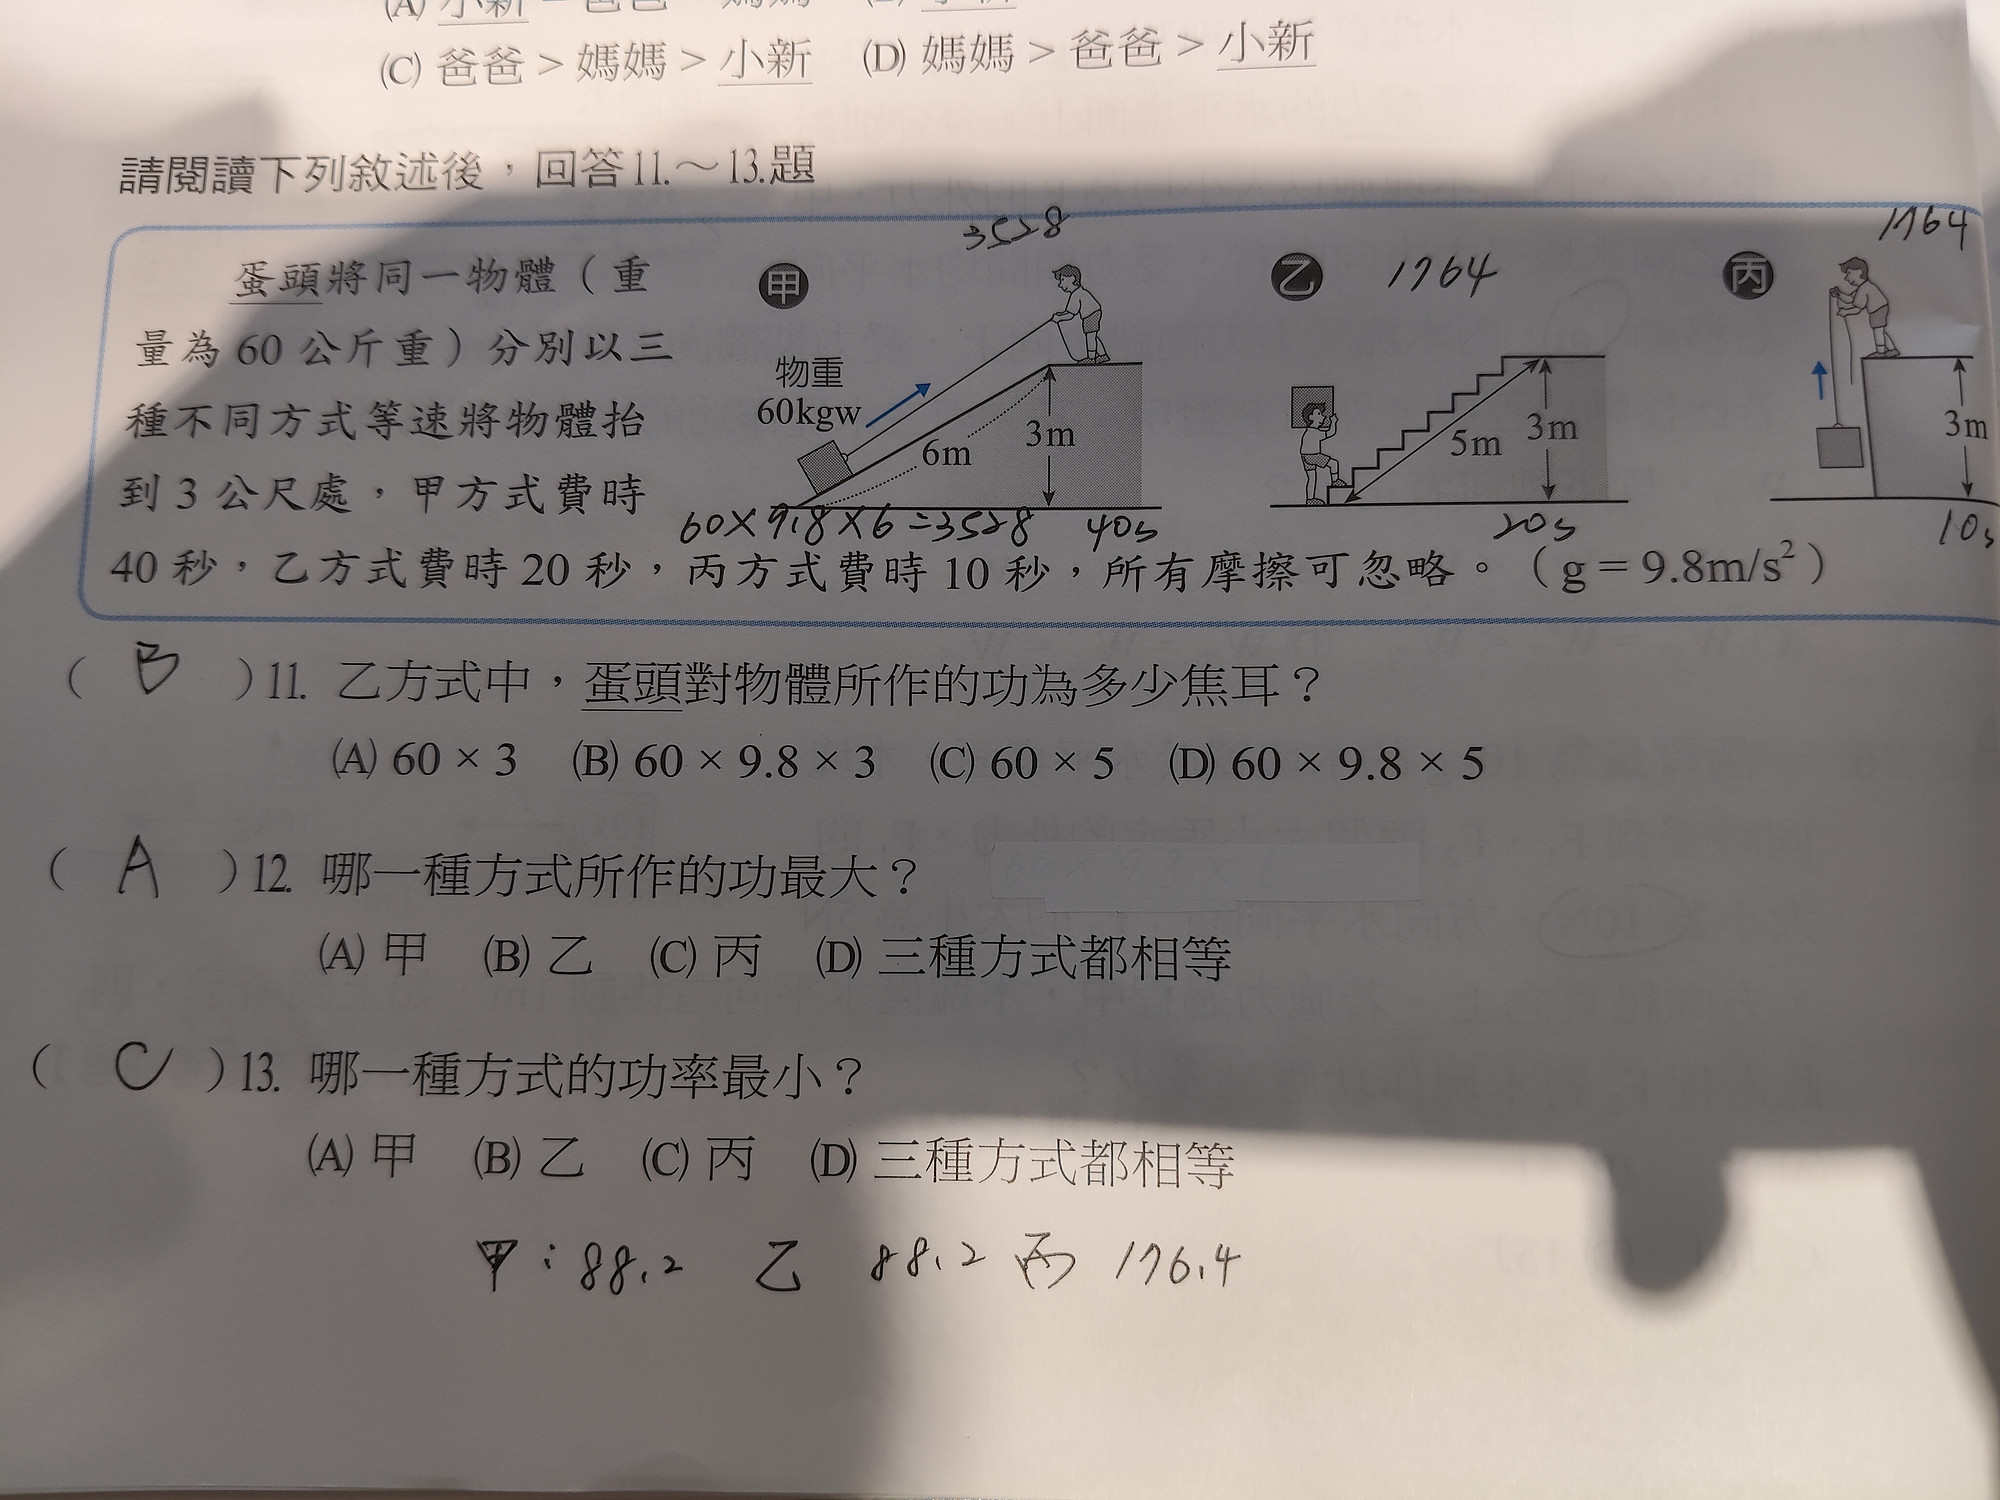 (C) 爸爸 > 媽媽 > 小新 (D) 媽媽 > 爸爸 > 小新
請閱讀下列敘述後，回答11.～13.題
蛋頭將同一物體（重
量為 60 公斤重）分別以三
種不同方式等速將物體抬
到 3 公尺處，甲方式費時
40 秒，乙方式費時 20 秒，丙方式費時 10 秒，所有摩擦可忽略。（g＝9.8m/s²）
甲
3528
物重
60kgw
6m
3m
60×9.8×6=3528 40s
乙
1764
5m
3m
20s
丙
1764
3m
10s
( B )11. 乙方式中，蛋頭對物體所作的功為多少焦耳？
(A) 60 × 3 (B) 60 × 9.8 × 3 (C) 60 × 5 (D) 60 × 9.8 × 5
( A )12. 哪一種方式所作的功最大？
(A) 甲 (B) 乙 (C) 丙 (D) 三種方式都相等
( C )13. 哪一種方式的功率最小？
(A) 甲 (B) 乙 (C) 丙 (D) 三種方式都相等
甲：88.2 乙 88.2 丙 176.4